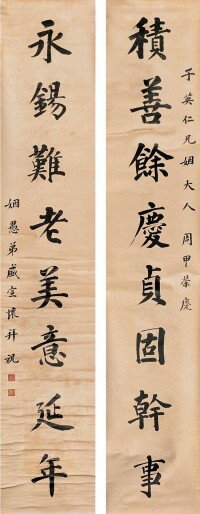 積善餘慶貞固幹事
子英仁兄姻大人 周甲榮慶
永錫難老美意延年
姻愚弟盛宣懷拜祝